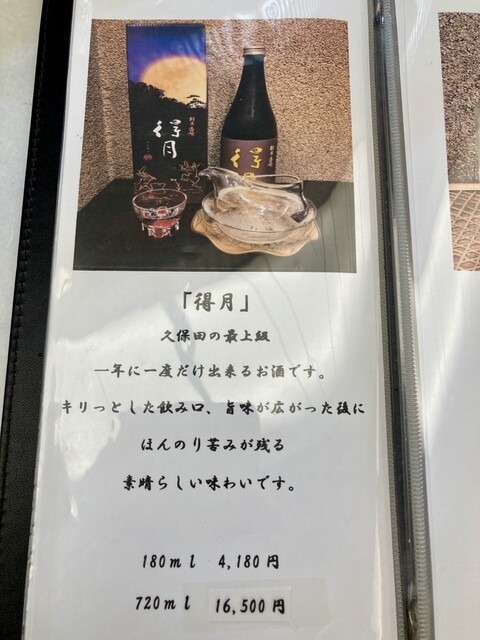 得月
得月
「得月」
久保田の最上級
一年に一度だけ出来るお酒です。
キリっとした飲み口、旨味が広がった後に
ほんのり苦みが残る
素晴らしい味わいです。
180ml 4,180円
720ml 16,500円